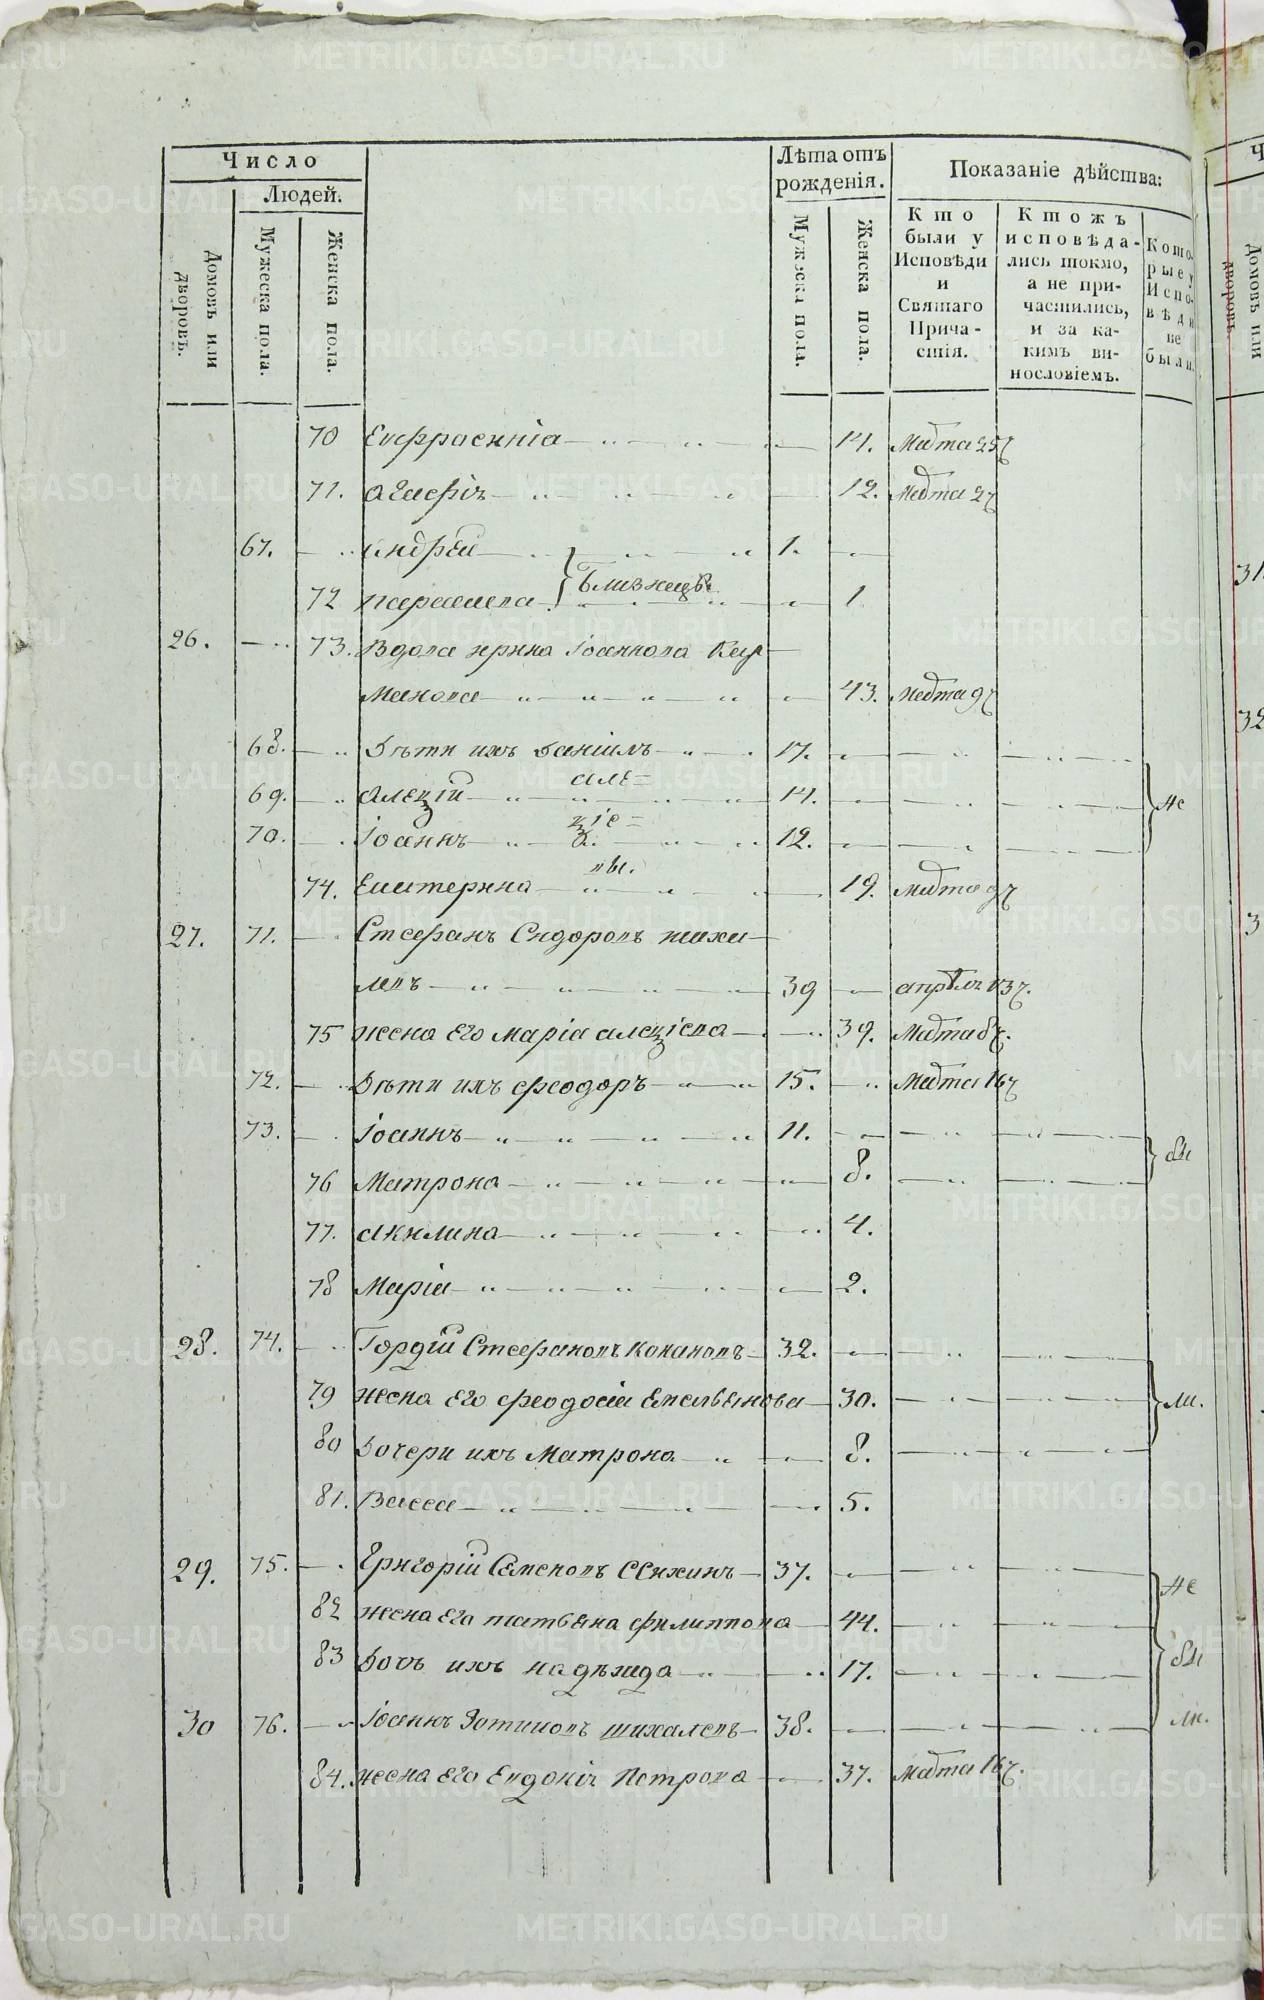 Число
Людей.
Домовъ или дворовъ.
Мужеска пола.
Женска пола.
Лѣта отъ рожденія.
Мужеска пола.
Женска пола.
Показаніе дѣйства:
Кто были у Исповѣди и Святаго Прича-стія.
Ктожъ исповѣда-лись токмо, а не при-частились, и за ка-кимъ ви-нословіемъ.
Кото-рые у Испо-вѣди не были.
70 Евфросинія 14. Марта 25
71. Агафія 12. Марта 2
67. Андрей 1.
близнецы
72 Параскева 1
26. 73. Вдова Ирина Іоаннова Кар-
манова 43. Марта 9
68. Дѣти ихъ Даніилъ 17.
69. Алеѯій але= 14. не
70. Іоаннъ ѯіе= 12.
74. Екатерина вы. 19. Марта 9
27. 71. Стефанъ Сидоровъ шиха-
левъ 39 апрѣля 13
75 жена его Марія алеѯіева 39. Марта 8
72. Дѣти ихъ Феодоръ 15. Марта 16
73. Іоаннъ 11.
бы
76 Матрона 8.
77. Акилина 4.
78 Марія 2.
28. 74. Гордій Стефановъ Конановъ 32.
79 жена его Феодосія Емельянова 30. ли.
80 Дочери ихъ Матрона 8.
81. Васса 5.
29. 75. Григорій Семеновъ 37. не
82 жена его татьяна филиппова 44.
83 Дочь ихъ надѣжда 17. бы
30 76. Іоаннъ Зотиковъ шихалевъ 38. ли.
84. жена его Евдокія Петрова 37. Марта 16
METRIKI.GASO-URAL.RU